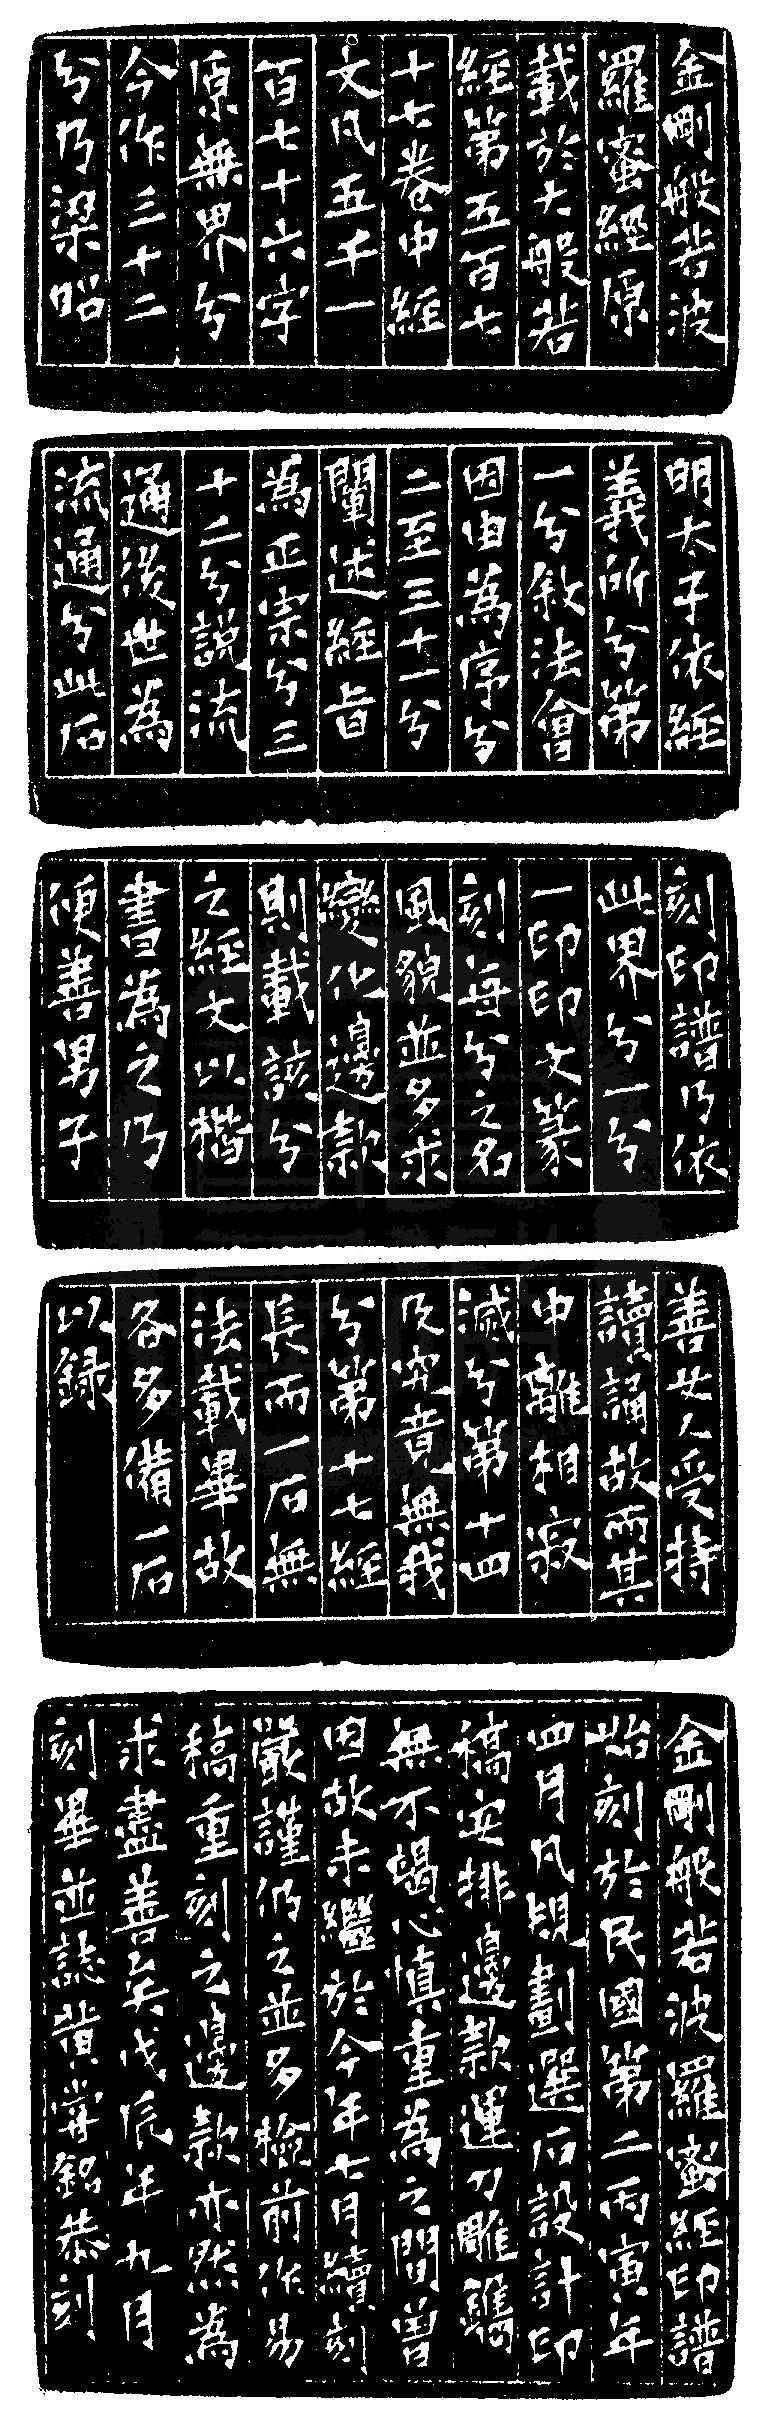 金剛般若波
羅蜜經原
載於大般若
經第五百七
十七卷中經
文凡五千一
百七十六字
原無界分
今作三十二
分乃梁昭
明太子依經
義所分第
一分敘法會
因由為序分
二至三十一分
闡述經旨
為正宗分三
十二分說流
通後世為
流通分此石
刻印譜乃依
此界分一分
一印印文篆
刻每分之名
風貌並多求
變化邊款
則載該分
之經文以楷
書為之乃
便善男子
善女人受持
讀誦故而其
中離相寂
滅分第十四
及究竟無我
分第十七經
長而一石無
法載畢故
各多備一石
以錄
金剛般若波羅蜜經印譜
始刻於民國第二丙寅年
四月凡規劃選石設計印
稿安排邊款運刀雕鐫
無不竭心慎重為之間曾
因故未繼於今年七月續刻
嚴謹仍之並多檢前作易
稿重刻之邊款亦然為
求盡善矣戊辰年九月
刻畢並誌黃嘗銘恭刻